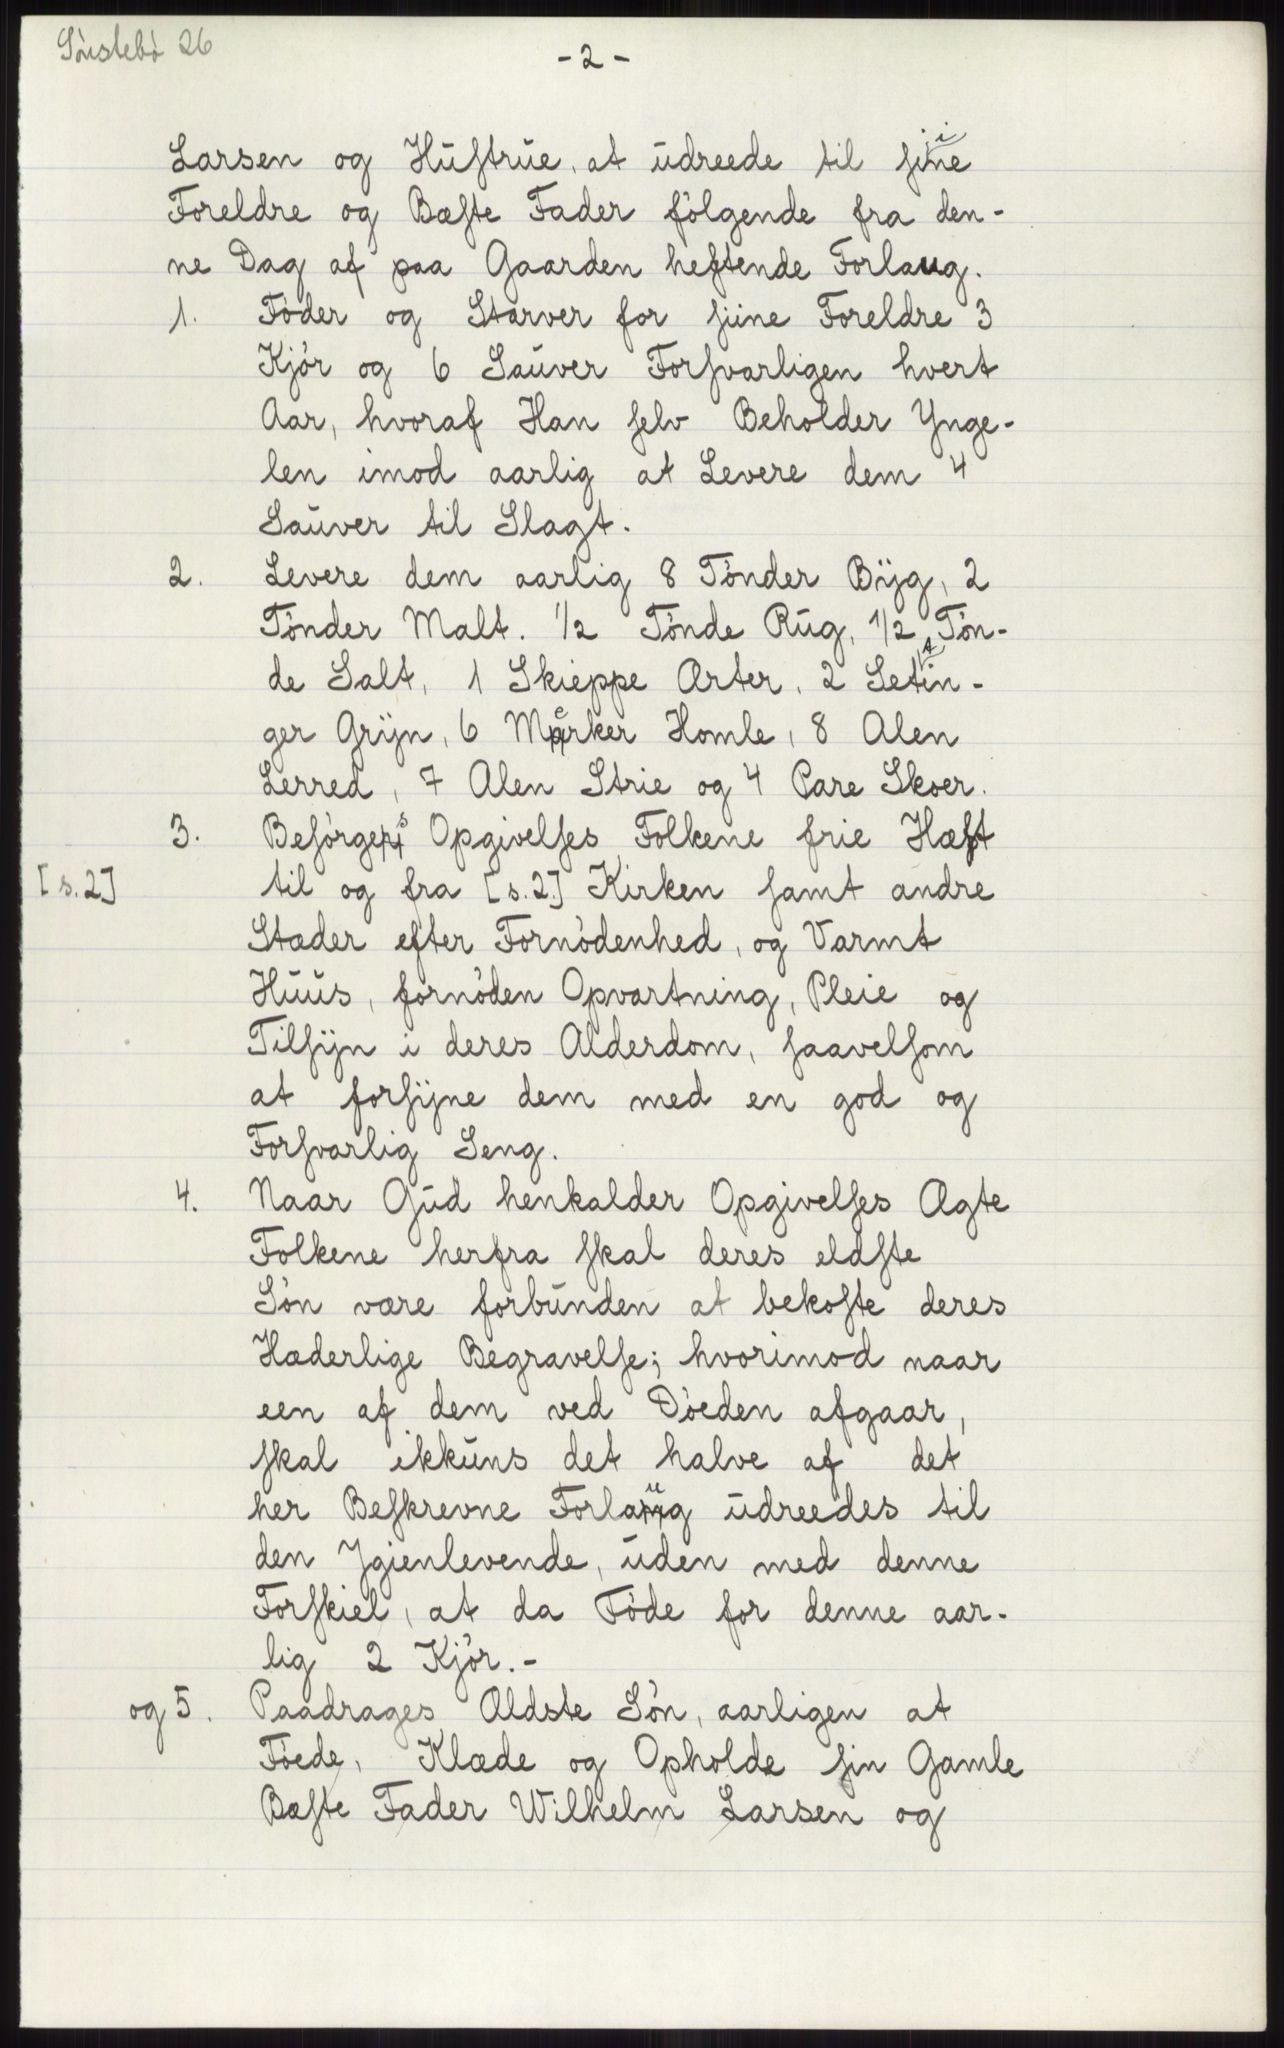 Sønstebø 26
- 2 -
Larsen og Hustrue, at udreede til siine
Foreldre og Bæste Fader følgende fra den-
ne Dag af paa Gaarden heftende Forlaug.
1. Føder og Starver for siine Foreldre 3
Kjør og 6 Sauver Forsvarligen hvert
Aar, hvoraf Han selv Beholder Ynge-
len imod aarlig at Levere dem 4
Sauver til Slagt.
2. Levere dem aarlig 8 Tønder Byg, 2
Tønder Malt. 1/2 Tønde Rug, 1/2 Tøn-
de Salt, 1 Skieppe Arter, 2 Setin-
ger Gryn, 6 Mærker Homle, 8 Alen
Lerred, 7 Alen Strie og 4 Pare Skoer.
3. Besørges Opgivelses Folkene frie Hæst
[s.2] til og fra [s.2] Kirken samt andre
Stæder efter Fornødenhed, og Varmt
Huus, fornøden Opvartning, Pleie og
Tilsyn i deres Alderdom, saavelsom
at forsyne dem med en god og
Forsvarlig Seng.
4. Naar Gud henkalder Opgivelses Ægte
Folkene herfra skal deres eldste
Søn være forbunden at bekoste deres
Hæderlige Begravelse; hvorimod naar
een af dem ved Døeden afgaar,
skal ikkuns det halve af det
her Beskrevne Forlaug udreedes til
den Igienlevende, uden med denne
Forskiel, at da Føde for denne aar-
lig 2 Kjør.-
og 5. Paadrages Ældste Søn, aarligen at
Føede, Klæde og Opholde sin Gamle
Bæste Fader Wilhelm Larsen og